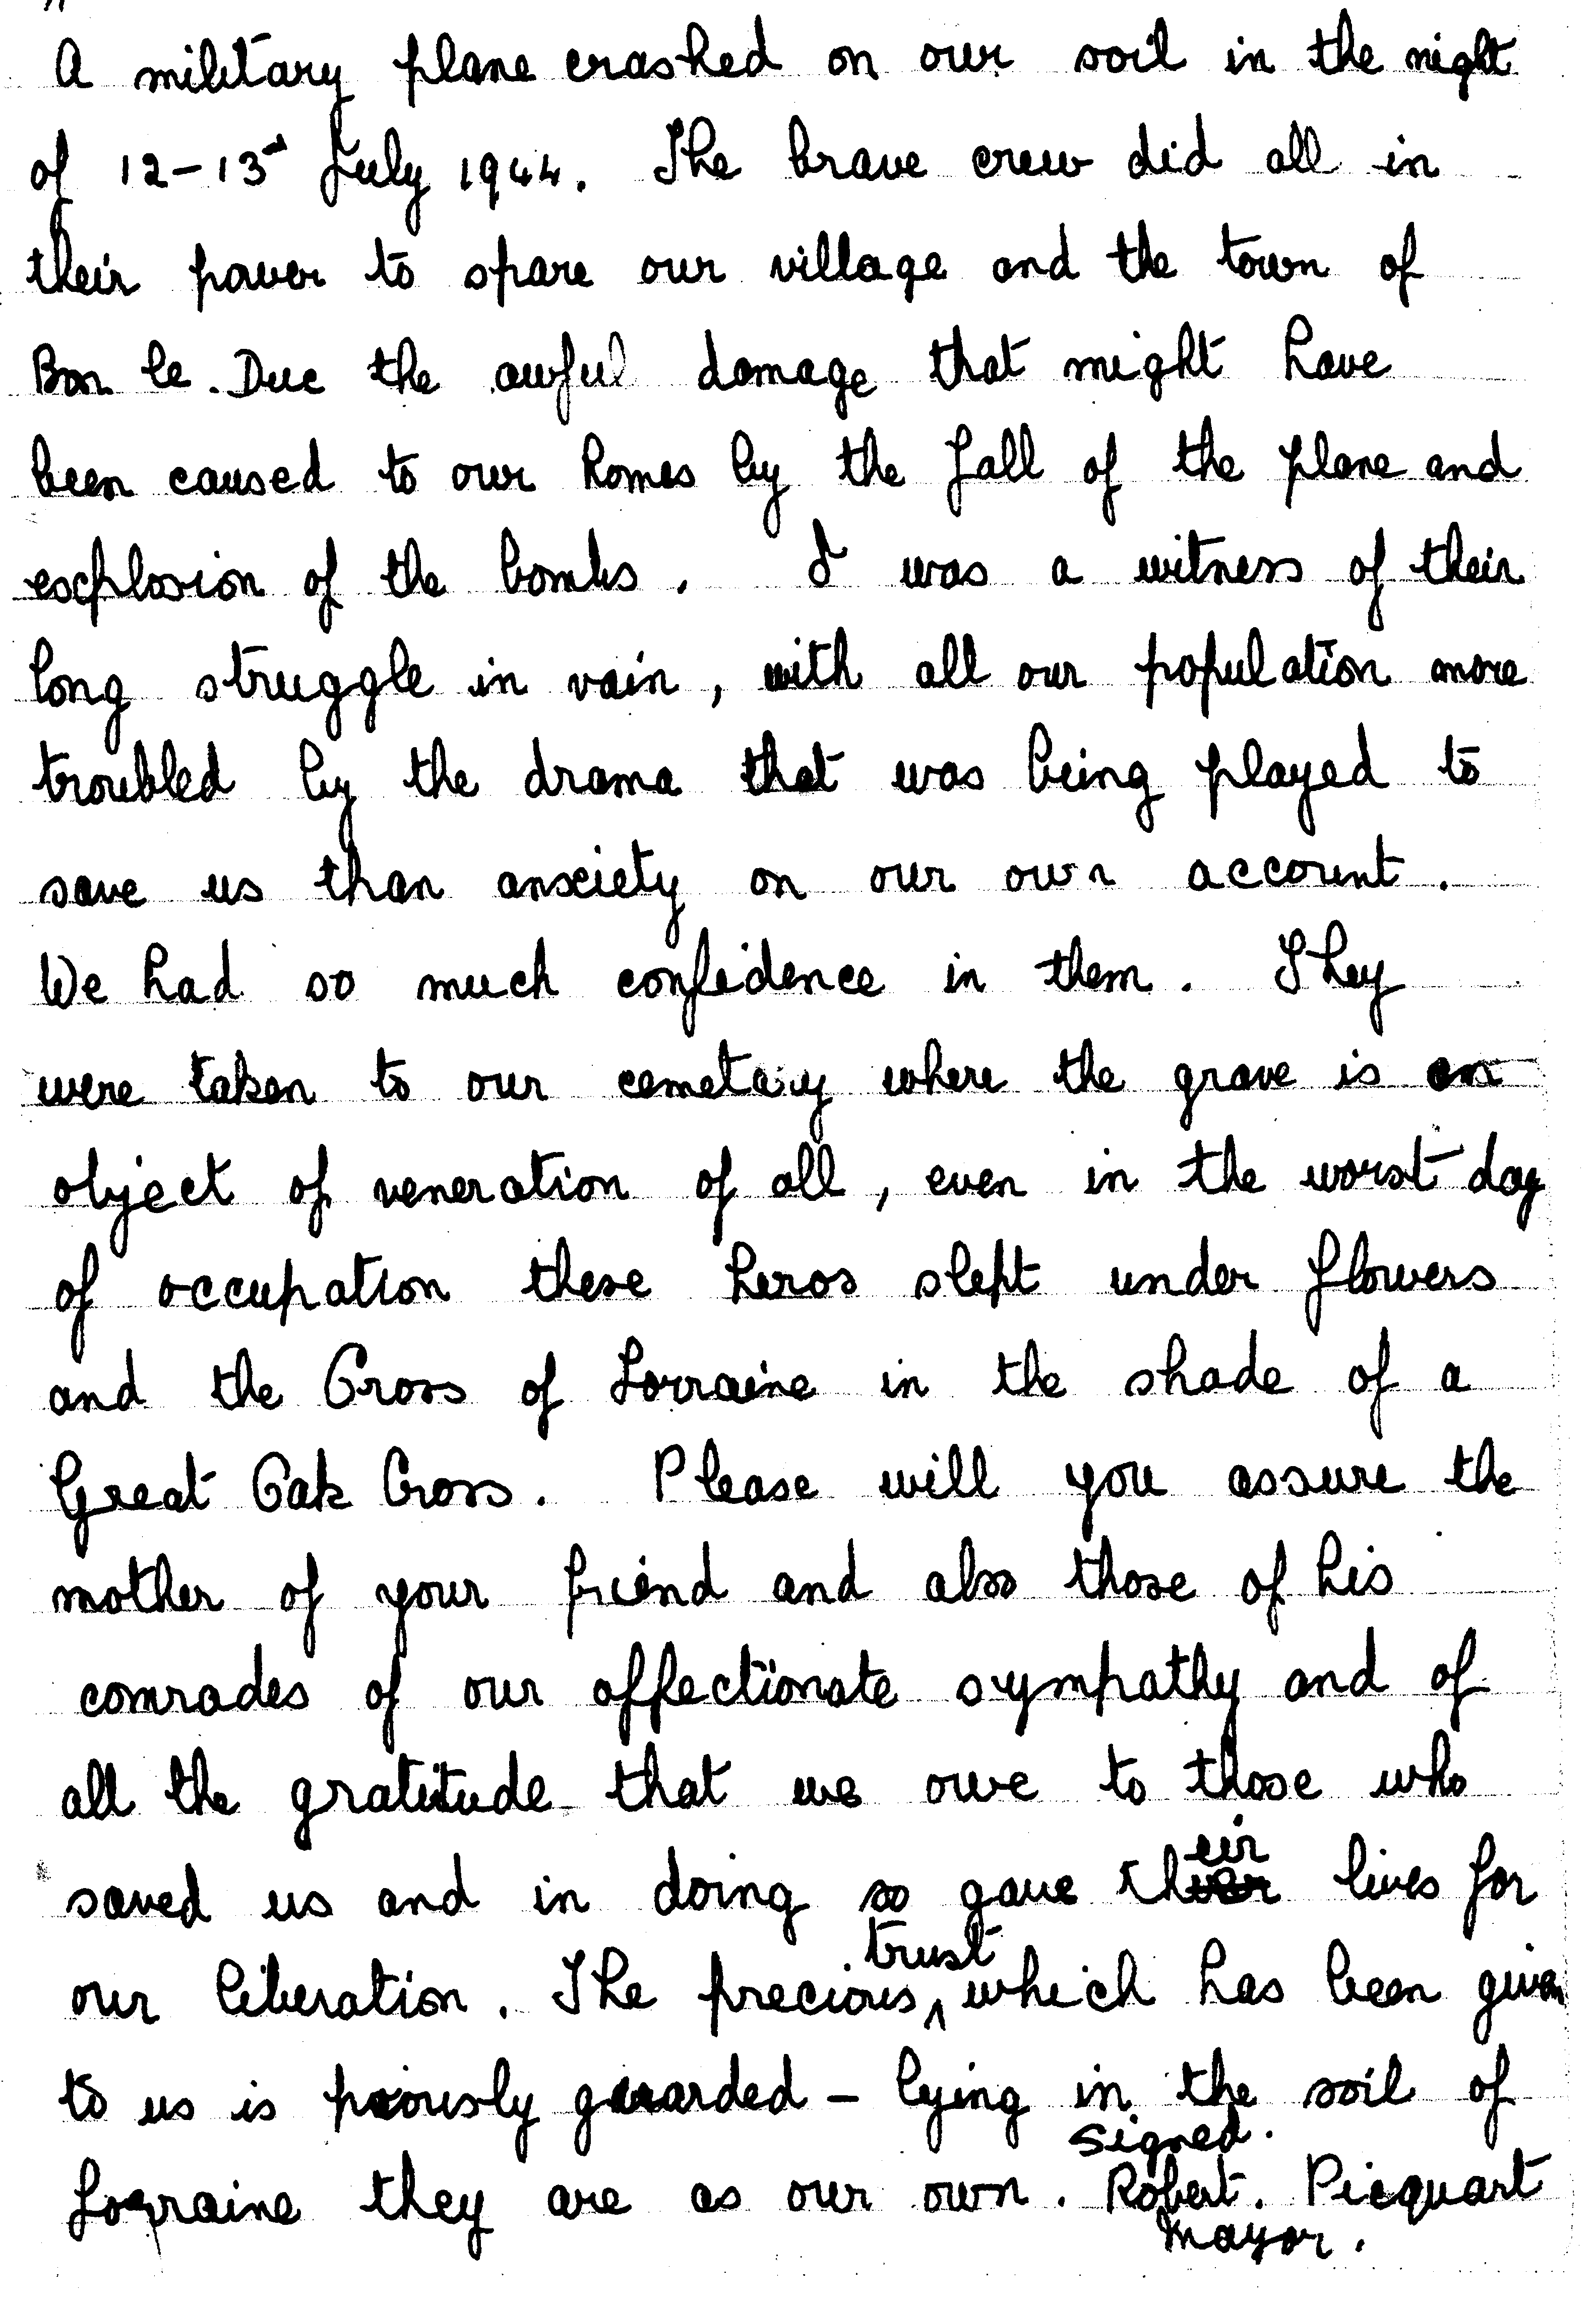 A military plane crashed on our soil in the night
of 12-13rd July 1944. The brave crew did all in
their power to spare our village and the town of
Bar le. Duc the awful damage that might have
been caused to our homes by the fall of the plane and
explosion of the bombs. I was a witness of their
long struggle in vain, with all our population more
troubled by the drama that was being played to
save us than anxiety on our own account.
We had so much confidence in them. They
were taken to our cemetary where the grave is an
object of veneration of all, even in the worst day
of occupation these heros slept under flowers
and the Cross of Lorraine in the shade of a
Great Oak Cross. Please will you assure the
mother of your friend and also those of his
comrades of our affectionate sympathy and of
all the gratitude that we owe to those who
saved us and in doing so gave their lives for
our liberation. The precious, trust which has been given
to us is piously guarded - lying in the soil of
Lorraine they are as our own. signed. Robert. Picquart
Mayor.